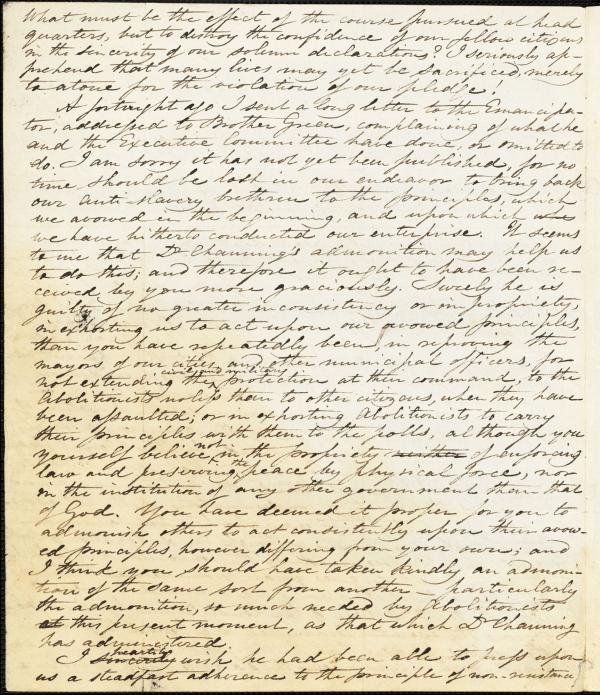 What must be the effect of the course pursued at head
quarters, but to destroy the confidence of our fellow citizens
in the sincerity of our solemn declarations? I seriously ap-
prehend that many lives may yet be sacrificed, merely
to atone for the violation of our pledge!
A fortnight ago I sent a long letter to the Emancipa-
tor, addressed to Brother Green, complaining of what he
and the Executive Committee have done, or omitted to
do. I am sorry it has not yet been published, for no
time should be lost in our endeavor to bring back
our anti-slavery brethren to the principles, which
we avowed in the beginning, and upon which
we have hitherto conducted our enterprise. It seems
to me that Dr Channing's admonition may help us
to do this; and therefore it ought to have been re-
ceived by you more graciously. Surely he is
guilty of no greater inconsistency or impropriety,
in exhorting us to act upon our avowed principles,
than you have repeatedly been, in reproving the
mayors of our cities and other municipal officers, for
not extending the civil and military protection at their command, to the
Abolitionists no less than to other citizens, when they have
been assaulted; or in exhorting Abolitionists to carry
their principles with them to the polls, although you
yourself believe not in the propriety of enforcing
law and preserving the peace by physical force, nor
in the institution of any other government than that
of God. You have deemed it proper for you to
admonish others to act consistently upon their avow-
ed principles, however differing from your own; and
I think you should have taken kindly an admoni-
tion of the same sort from another - particularly
the admonition, so much needed by Abolitionists
at this present moment, as that which Dr Channing
has administered.
I heartily wish he had been able to press upon
us a steadfast adherence to the principle of non-resistance